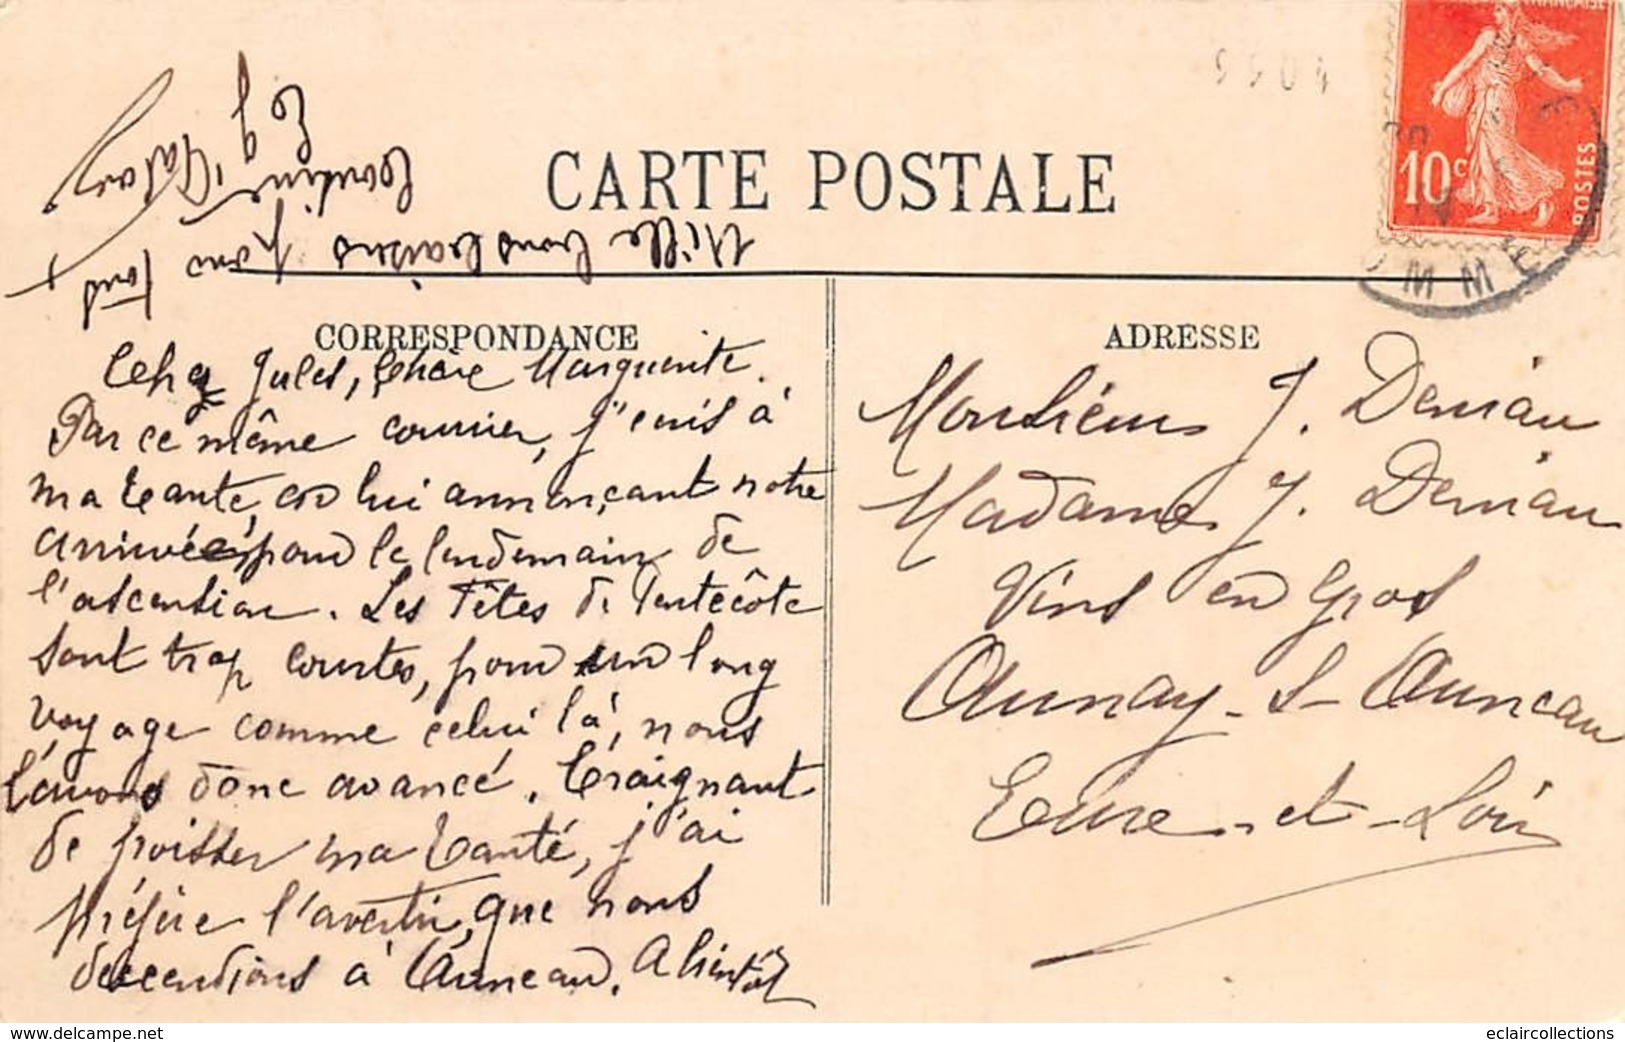 CARTE POSTALE
CORRESPONDANCE
Cher Jules, Chère Marguerite.
Par ce même courrier, j'écris à
ma tante, en lui annonçant notre
arrivée, pour le lendemain de
l'ascension. Les Fêtes de Pentecôte
sont trop courtes, pour un long
voyage comme celui là, nous
l'avons donc avancé. Craignant
de froisser ma tante, j'ai
préféré l'avertir, que nous
descendions à Auneau. A bientôt
Mille bons baisers pour tous
ADRESSE
Monsieur J. Deniau
Madame J. Deniau
Vins en Gros
Aunay-s-Auneau
Eure-et-Loir
10c
POSTES
eclaircollections
www.delcampe.net